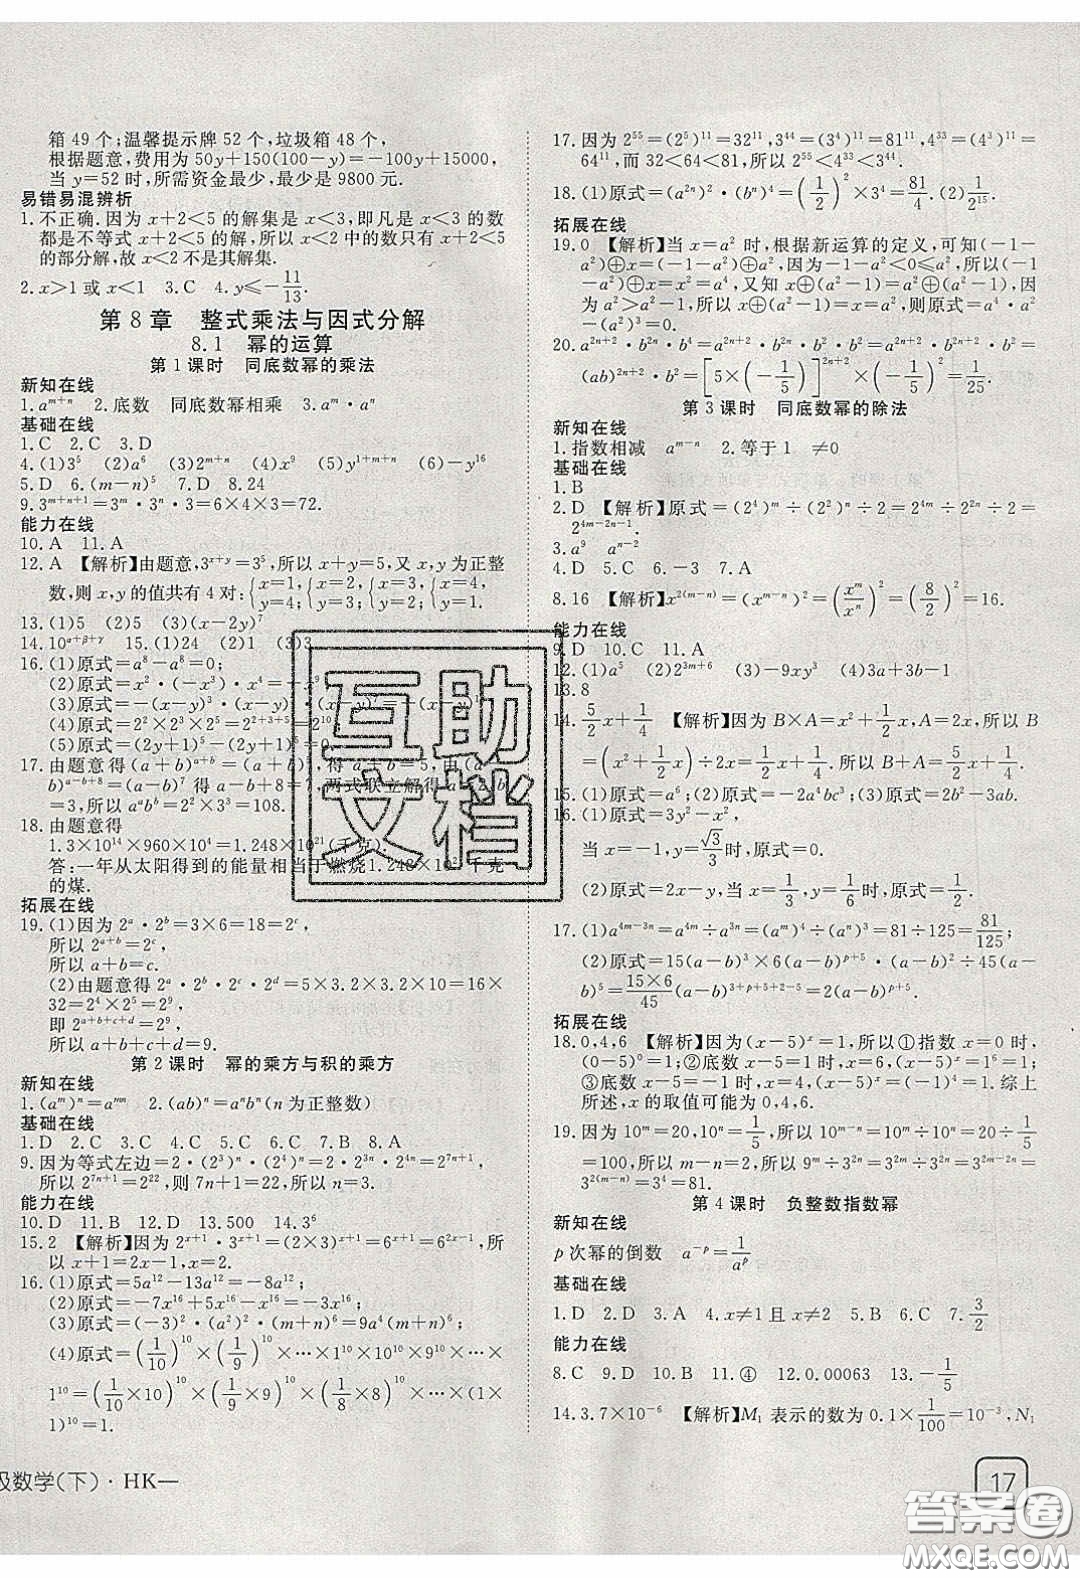 箱 49 个;温馨提示牌 52 个,垃圾箱 48 个.
根据题意,费用为 50y+150(100-y)=-100y+15000,
当 y=52 时,所需资金最少,最少是 9800 元.
易错易混辨析
1.不正确.因为 x+2<5 的解集是 x<3,即凡是 x<3 的数
都是不等式 x+2<5 的解,所以 x<2 中的数只有 x+2<5
的部分解,故 x<2 不是其解集.
2.x>1 或 x<1 3.C 4.y≤-11/13.
第 8 章 整式乘法与因式分解
8.1 幂的运算
第 1 课时 同底数幂的乘法
新知在线
1.a^(m+n) 2.底数 同底数幂相乘 3.a^m·a^n
基础在线
1.C 2.C 3.D
4.(1)3^5 (2)a^6 (3)2^(m+n) (4)x^9 (5)y^(1+m+n) (6)-y^16
5.D 6.(m-n)^5 7.D 8.24
9.3^(m+n+1)=3^m·3^n·3=6×4×3=72.
能力在线
10.A 11.A
12.A 【解析】由题意,3^(x+y)=3^5,所以 x+y=5,又 x,y 为正整
数,则 x,y 的值共有 4 对:{x=1,y=4;{x=2,y=3;{x=3,y=2;{x=4,y=1.
13.(1)5 (2)5 (3)(x-2y)^7
14.10^(α+β+γ) 15.(1)24 (2)1 (3)3
16.(1)原式=a^8-a^8=0;
(2)原式=x^2·(-x^3)·x^4=-x^9
(3)原式=-(x-y)^3·(x-y)
(4)原式=2^2×2^3×2^5=2^(2+3+5)=2^10
(5)原式=(2y+1)^5-(2y+1)^5=0.
17.由题意得(a+b)^a·(a+b)^b=(a+b)^(a+b)
所以 a^a b^b=2^2×3^3=108.
18.由题意得
1.3×10^14×960×10^4=1.248×10^21(千克).
答:一年从太阳得到的能量相当于燃烧1.248×10^21千克
的煤.
拓展在线
19.(1)因为 2^a·2^b=3×6=18=2^c,
所以 2^(a+b)=2^c,
所以 a+b=c.
(2)由题意得 2^a·2^b·2^c·2^d=5×3.2×3.2×10=16×
32=2^4×2^5=2^9,
即 2^(a+b+c+d)=2^9,
所以 a+b+c+d=9.
第 2 课时 幂的乘方与积的乘方
新知在线
1.(a^m)^n=a^(mn) 2.(ab)^n=a^n b^n(n 为正整数)
基础在线
1.D 2.C 3.C 4.D 5.C 6.C 7.B 8.A
9.因为等式左边=2·(2^3)^n·(2^4)^n=2·2^(3n)·2^(4n)=2^(7n+1),
所以 2^(7n+1)=2^22,则 7n+1=22,所以 n=3.
能力在线
10.D 11.B 12.D 13.500 14.3^6
15.2 【解析】因为 2^(x+1)·3^(x+1)=(2×3)^(x+1)=6^(x+1)=6^(2x-1),所
以 x+1=2x-1,所以 x=2.
16.(1)原式=5a^12-13a^12=-8a^12;
(2)原式=-7x^16+5x^16-x^16=-3x^16;
(3)原式=(-3)^2·(a^2)^2·(m+n)^6=9a^4(m+n)^6;
(4)原式=(1/10)^10×(1/9)^10×…×1^10×10^10×9^10×8^10×…×
1^10=(1/10×10)^10×(1/9×9)^10×(1/8×8)^10×…×(1×
1)^10=1.
17.因为 2^55=(2^5)^11=32^11,3^44=(3^4)^11=81^11,4^33=(4^3)^11=
64^11,而 32<64<81,所以 2^55<4^33<3^44.
18.(1)原式=(a^(2n))^2·(b^n)^4=(1/2)^2×3^4=81/4.(2)1/2^15.
拓展在线
19.0 【解析】当 x=a^2 时,根据新运算的定义,可知(-1-
a^2)⊕x=(-1-a^2)⊕a^2,因为-1-a^2<0≤a^2,所以(-1
-a^2)⊕x=(a^2)^2=a^4,又知 x⊕(a^2-1)=a^2⊕(a^2-1),因
为 a^2>a^2-1,所以 x⊕(a^2-1)=x=a^2,则原式=a^4·a^2-
(a^2)^3=0.
20.a^(2n+2)·b^(2n)·b^4=a^(2n+2)·b^(2n)·b^2·b^2=a^(2n+2)·b^(2n+2)·b^2=
(ab)^(2n+2)·b^2=[5×(-1/5)]^(2n+2)×(-1/5)^2=1/25.
第 3 课时 同底数幂的除法
新知在线
1.指数相减 a^(m-n) 2.等于 1 ≠0
基础在线
1.B
2.D 【解析】原式=(2^4)^m÷(2^2)^n÷2=2^(4m)÷2^(2n)÷2=
2^(4m-2n-1).
3.a^9 a^(n-2)
4.D 5.C 6.-3 7.A
8.16 【解析】x^(2(m-n))=(x^(m-n))^2=(x^m/x^n)^2=(8/2)^2=16.
能力在线
9.D 10.C 11.A
12.(1)a^5 (2)2^(3m+6) (3)-9xy^3 (4)3a+3b-1
13.8
14.5/2x+1/4 【解析】因为 B×A=x^2+1/2x,A=2x,所以 B
=(x^2+1/2x)÷2x=1/2x+1/4.所以 B+A=5/2x+1/4.
15.(1)原式=a^6;(2)原式=-2a^4bc^3;(3)原式=2b^2-3ab.
16.(1)原式=3y^2-x^2,
当 x=-1,y=√3/3时,原式=0.
(2)原式=2x-y,当 x=1/3,y=1/6时,原式=1/2.
17.(1)a^(4m-3n)=a^(4m)÷a^(3n)=(a^m)^4÷(a^n)^3=81÷125=81/125;
(2)原式=15(a-b)^3×6(a-b)^(p+5)·(a-b)^2÷45(a-
b)^5=15×6/45(a-b)^(3+p+5+2-5)=2(a-b)^(p+5).
拓展在线
18.0,4,6 【解析】因为(x-5)^x=1,所以①指数 x=0 时,
(0-5)^0=1;②底数 x-5=1 时,x=6,(x-5)^x=1^6=1;
③底数 x-5=-1 时,x=4,(x-5)^x=(-1)^4=1.综上
所述,x 的取值可能为 0,4,6.
19.因为 10^m=20,10^n=1/5,所以 10^(m-n)=10^m÷10^n=20÷1/5
=100,所以 m-n=2,所以 9^m÷3^(2n)=9^m÷9^n=3^(2m)÷3^(2n)=
3^(2(m-n))=81.
第 4 课时 负整数指数幂
新知在线
p 次幂的倒数 a^(-p)=1/a^p
基础在线
1.D 2.D 3.A 4.x≠1 且 x≠2 5.B 6.C 7.3/2
能力在线
8.C 9.D 10.D 11.④ 12.0.00063 13.-1/5
14.3.7×10^(-6) 【解析】M₁ 表示的数为 0.1×1/100=10^(-3),N₁
级数学(下)·HK—
17
互助文档
答案圈
MXQE.COM